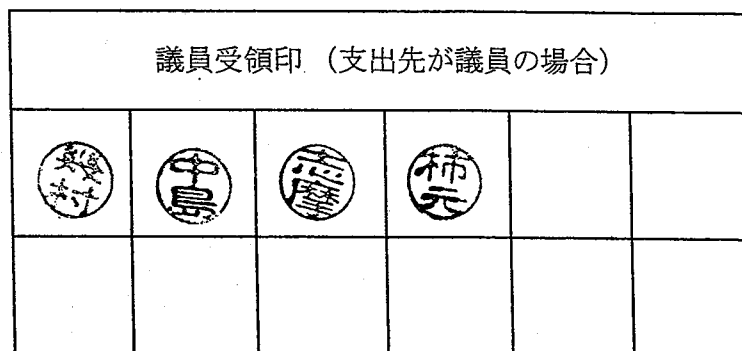 議員受領印（支出先が議員の場合）
中島
志摩
柿元